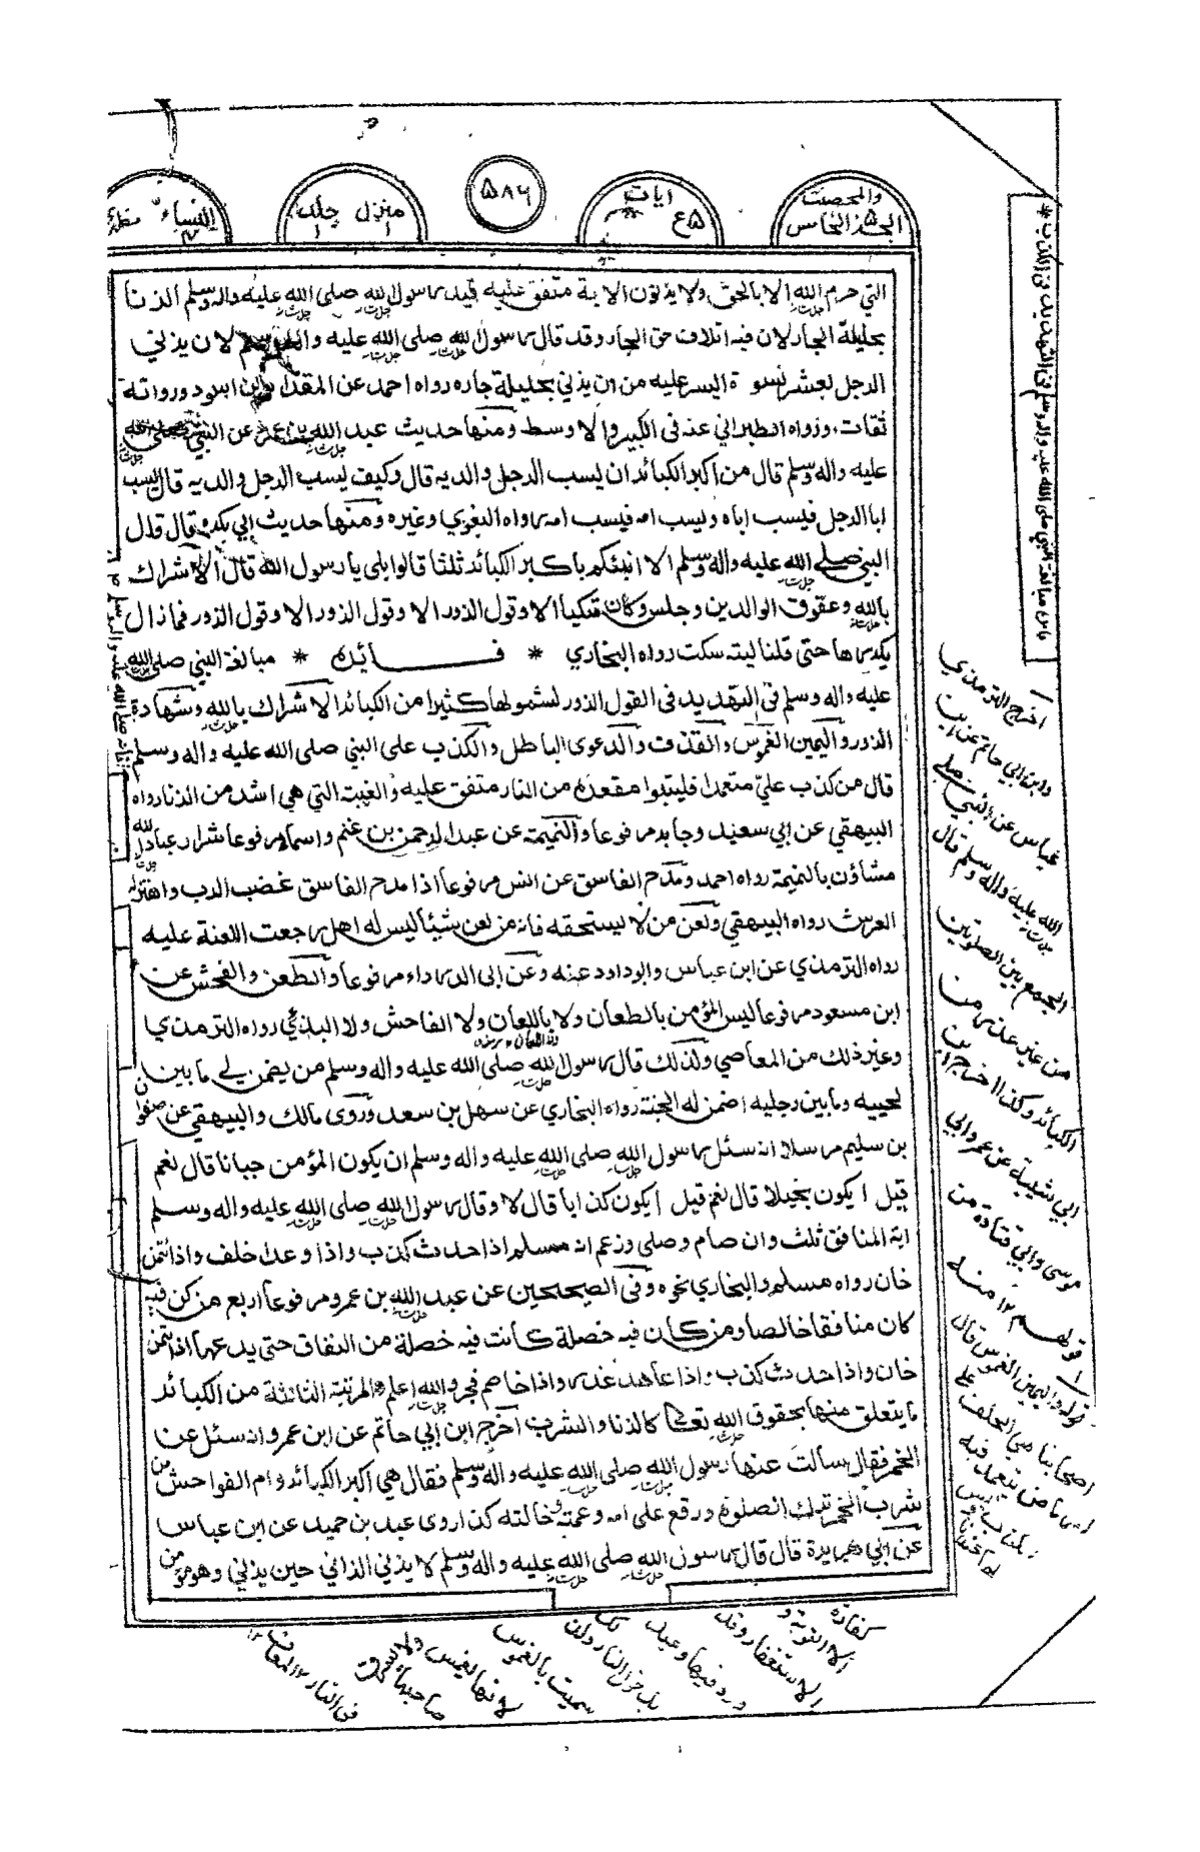 والمحصنت
الجزء الخامس
ايات
ع ۵
۵۸۶
منزل جلد
۱ ۱
النساء
۴
التي حرم الله الا بالحق ولا يزنون الاية متفق عليه قيد رسول الله صلى الله عليه واله وسلم الزنا
بحليلة الجار لان فيه اتلاف حق الجار وقد قال رسول الله صلى الله عليه واله وسلم لان يزني
الرجل بعشر نسوة اليسر عليه من ان يزني بحليلة جاره رواه احمد عن المقداد بن اسود ورواته
ثقات، ورواه الطبراني عنه في الكبير والاوسط ومنها حديث عبد الله بن عمر عن النبي صلى الله
عليه واله وسلم قال من اكبر الكبائر ان يسب الرجل والديه قال وكيف يسب الرجل والديه قال يسب
ابا الرجل فيسب اباه ويسب امه فيسب امه رواه البغوي وغيره ومنها حديث ابي بكرة قال قال
النبي صلى الله عليه واله وسلم الا انبئكم باكبر الكبائر ثلثا قالوا بلى يا رسول الله قال الاشراك
بالله وعقوق الوالدين وجلس وكان متكيا الا وقول الزور الا وقول الزور الا وقول الزور فما زال
يكررها حتى قلنا ليته سكت رواه البخاري * فــــائده * مبالغة النبي صلى الله
عليه واله وسلم في التهديد في القول الزور لشمولها كثيرا من الكبائر الاشراك بالله وشهادة
الزور واليمين الغموس والقذف والدعوى الباطل والكذب على النبي صلى الله عليه واله وسلم
قال من كذب علي متعمدا فليتبوا مقعده من النار متفق عليه والغيبة التي هي اشد من الزنا رواه
البيهقي عن ابي سعيد وجابر مرفوعا والنميمة عن عبد الرحمن بن غنم واسماء مرفوعا شرار عباد الله
مشاؤن بالنميمة رواه احمد ومدح الفاسق عن انس مرفوعا اذا مدح الفاسق غضب الرب واهتزله
العرش رواه البيهقي ولعن من لا يستحقه فانه من لعن شيئا ليس له اهل رجعت اللعنة عليه
رواه الترمذي عن ابن عباس وابو داود عنه وعن ابي الدرداء مرفوعا والطعن والفحش عن
ابن مسعود مرفوعا ليس المؤمن بالطعان ولا باللعان ولا الفاحش ولا البذئي رواه الترمذي
وغير ذلك من المعاصي ولذلك قال رسول الله صلى الله عليه واله وسلم من يضمن لي ما بين
لحييه وما بين رجليه اضمن له الجنة رواه البخاري عن سهل بن سعد وروى مالك والبيهقي عن صفوان
بن سليم مرسلا انه سئل رسول الله صلى الله عليه واله وسلم ان يكون المؤمن جبانا قال نعم
قيل ايكون بخيلا قال نعم قيل ايكون كذابا قال لا وقال رسول الله صلى الله عليه واله وسلم
اية المنافق ثلث وان صام وصلى وزعم انه مسلم اذا حدث كذب واذا وعد اخلف واذا ائتمن
خان رواه مسلم والبخاري نحوه وفي الصحيحين عن عبد الله بن عمرو مرفوعا اربع من كن فيه
كان منافقا خالصا ومن كان فيه خصلة كانت فيه خصلة من النفاق حتى يدعها اذا ائتمن
خان واذا حدث كذب واذا عاهد غدر واذا خاصم فجر والله اعلم والمرتبة الثالثة من الكبائر
ما يتعلق منها بحقوق الله تعالى كالزنا والشرب اخرج ابن ابي حاتم عن ابن عمرو انه سئل عن
الخمر فقال سالت عنها رسول الله صلى الله عليه واله وسلم فقال هي اكبر الكبائر وام الفواحش من
شرب الخمر ترك الصلوة ووقع على امه وعمته وخالته كذا روى عبد بن حميد عن ابن عباس
عن ابي هريرة قال قال رسول الله صلى الله عليه واله وسلم لا يزني الزاني حين يزني وهو مؤمن
اخرج الترمذي
وابن ابي حاتم عن ابن
عباس عن النبي صلى
الله عليه واله وسلم قال
الجمع بين الصلوتين
من غير عذر من
الكبائر وكذا اخرج ابن
ابي شيبة عن عمر وابي
موسى وابي قتادة من
قولهم ۱۲ منه
قوله واليمين الغموس قال
اصحابنا هي الحلف على
كفارة
الا التوبة و
الاستغفار وقد
ورد فيها وعيد
سميت بالغموس
لانها تغمس
صاحبها
في النار ۱۲